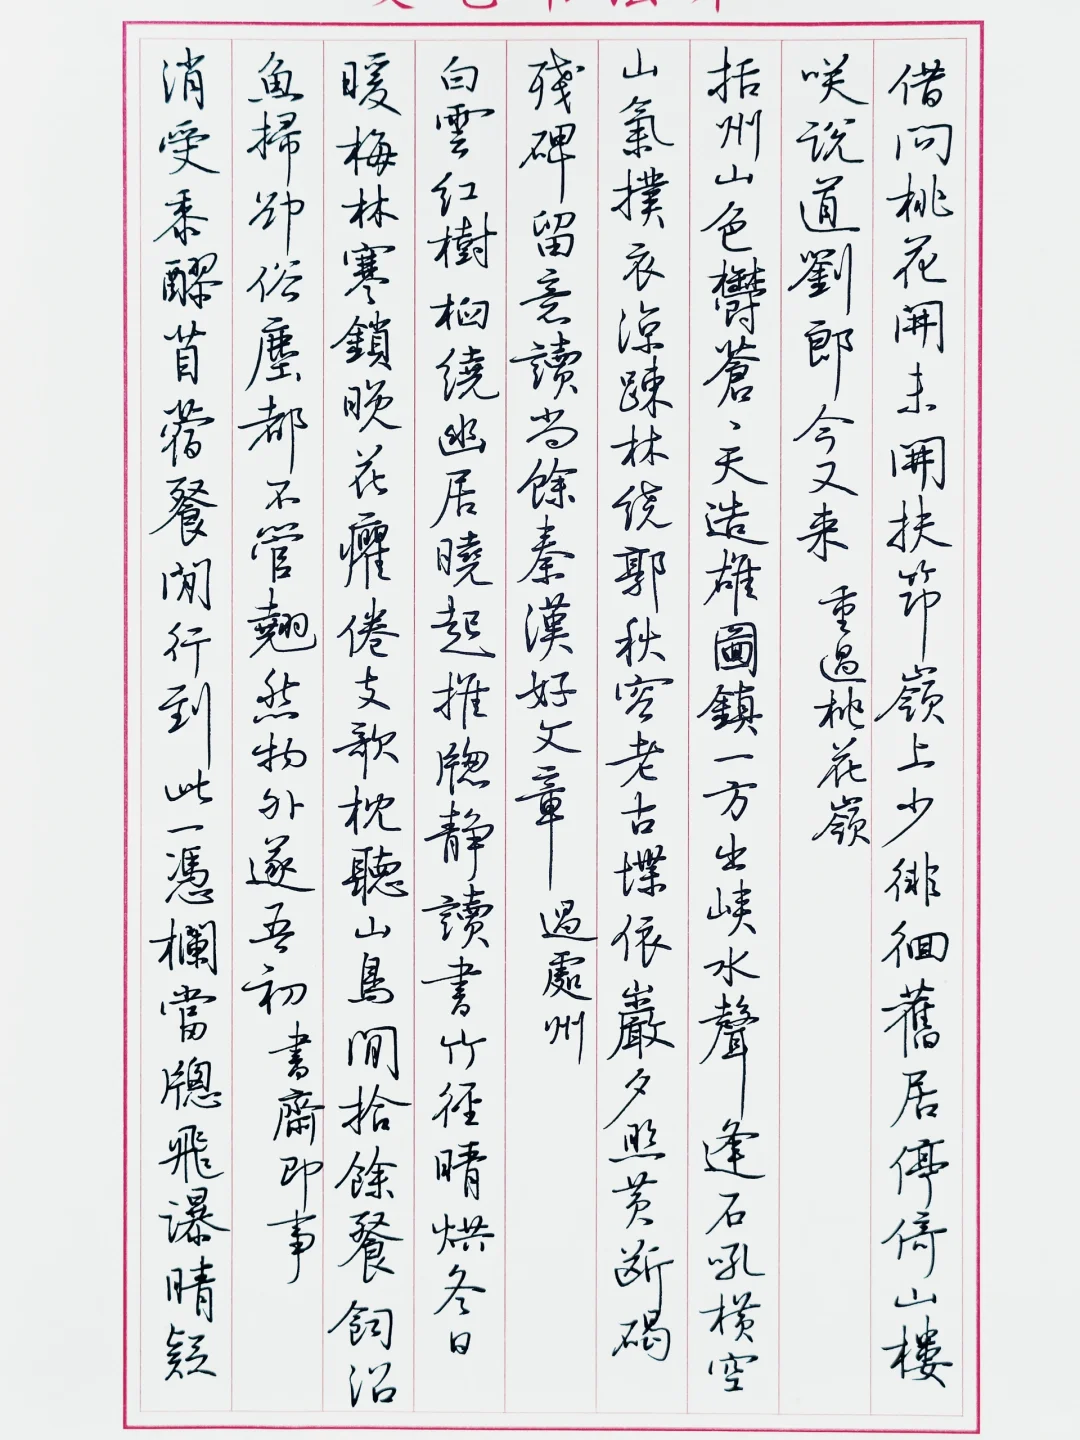 借問桃花開未開扶筇嶺上少徘徊舊居停倚山樓
咲說道劉郎今又来 重過桃花嶺
括州山色鬱蒼〻天造雄圖鎮一方出峽水聲逢石吼橫空
山氣撲衣涼踈林绕郭秋容老古堞依巖夕照黄斷碣
殘碑留意讀尚餘秦漢好文章 過處州
白雲红樹栢繞幽居曉起推牕静讀書竹徑晴烘冬日
暖梅林寒鎖晚花癯倦支歌枕聽山鳥閒拾餘餐飼沼
魚掃卻俗塵都不管翹然物外遂吾初 書齋即事
消受黍醪苜蓿餐閒行到此一憑欄當牕飛瀑晴疑